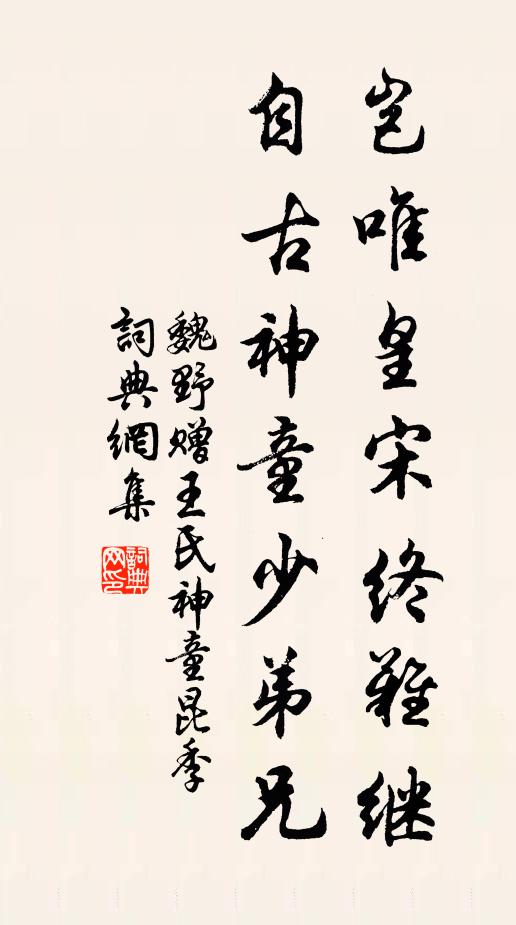 岂唯皇宋终难继
自古神童少弟兄
魏野赠王氏神童昆季
詞典網集
詞典网印